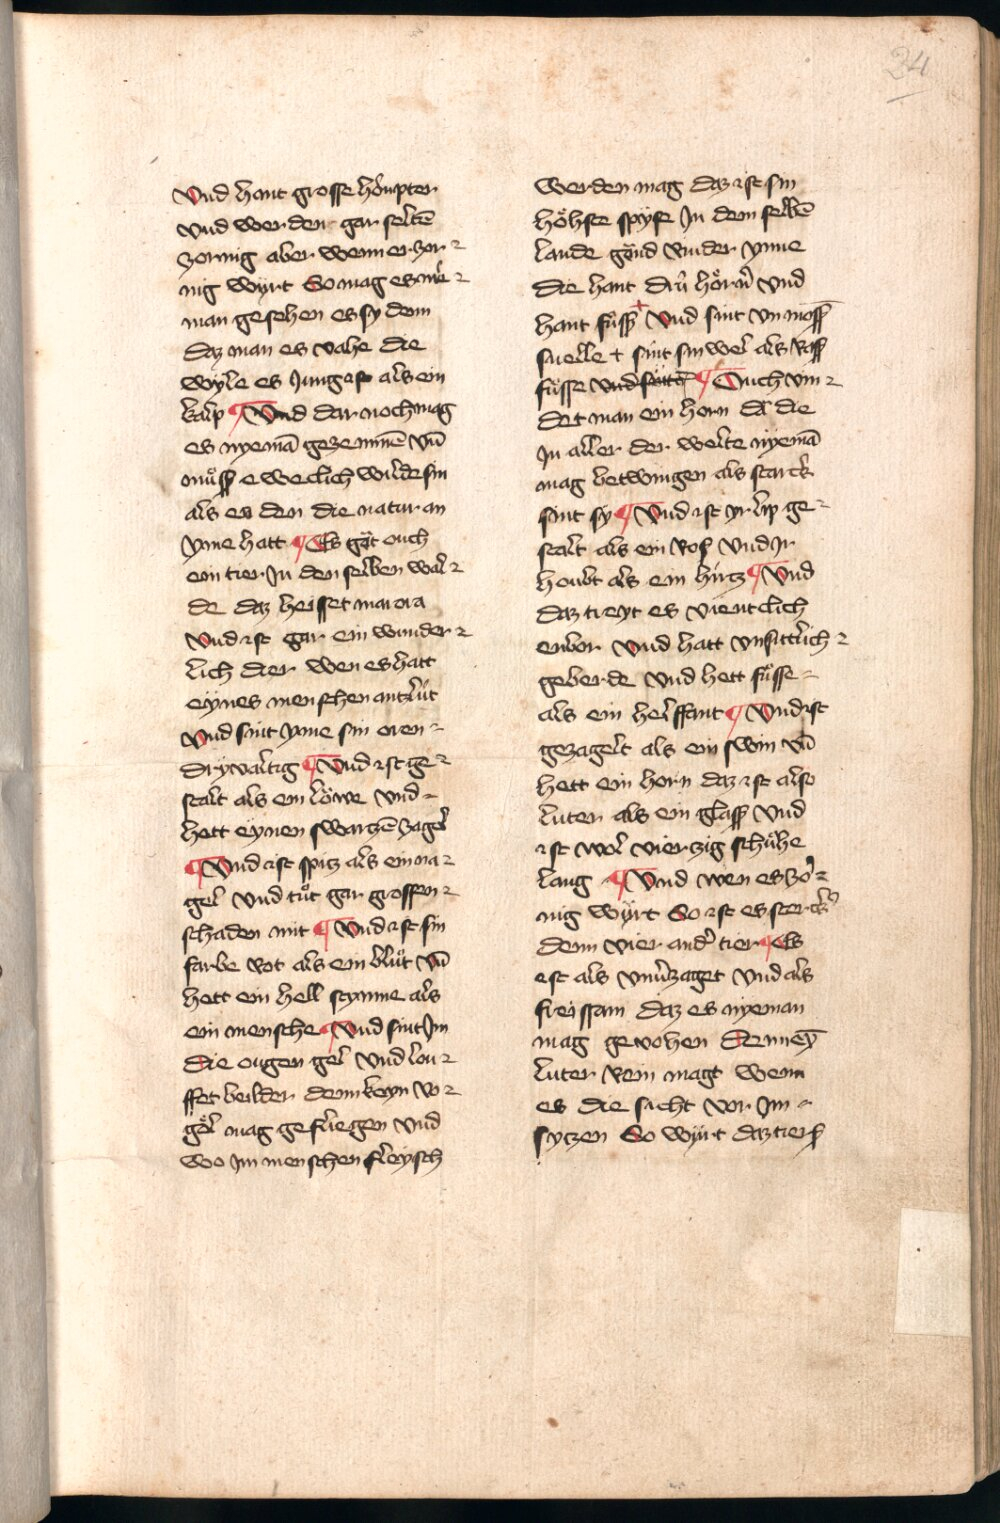 24
Vnd hant grosse höupter
vnd werden gar seltē
zornig aber wenn er zor⸗
nig wyrt So mag es nie⸗
man gesehen es sy denn
daz man es vahe die
wyle es Jung ist als ein
kalp ¶ Vnd dar noch mag
es nyemā gezeminē vn̄
muͦſſ eweclich wilde sin
als es den die natur an
yme hatt ¶ Es gāt ouch
ein tier Jn den selben wal⸗
de daz heisset
vnd ist gar ein wunder⸗
lich dier wen es hatt
eynes menschen antlüt
vnd sint yme sin oren⸗
dryvaltig ¶ Vnd ist ge⸗
stalt als ein löwe vnd⸗
hett eynen swarzē zagel
¶ Vnd ist spitz als ein na⸗
gel vnd tuͦt gar grossen⸗
schaden mit ¶ Vnd ist sin
farbe rot als ein bluͦt vn̄
hett ein hell stymme als
ein mensche ¶ Vnd sint Jm
die ougen gel vnd lou⸗
ffet belder denn keyn vo⸗
gel mag gefliegen vnd
wo Jm menschen fleysch
werden mag daz ist sin
höhste spyse Jn dem selbē
lande gönd rinder ynne
die hant drü hörn̄ vnd
hant fuͤſſ + Vnd sint vn moſſ
snelle + sint sinwel als roſſ
fuͤsse vnd sint ¶ Ouch vin⸗
det man ein horn dā die
Jn aller der welte nyemā
mag betwingen als starck
sint sy ¶ Vnd ist yr lip ge⸗
stalt als ein ros vnd Jr
houbt als ein hirtz ¶ Vnd
daz treyt es vientclich
enbor vnd hatt vnsittlich⸗
geberde vnd hett fuͤsse⸗
als ein helffant ¶ Vnd ist
gezagelt als ein swin vn̄
hett ein horn daz ist also
luter als ein glaſſ vnd
ist wol vierzig schuͤhe
lang ¶ Vnd wen es zör⸗
nig wyrt So ist es stercker
denn vier ander tier ¶ Es
est als vnuͤzaget vnd als
freissam daz es nyeman
mag gevohen denn eȳ
luter rein magt wenn
es die sicht vor Jm⸗
sytzen So wyrt daz tiers